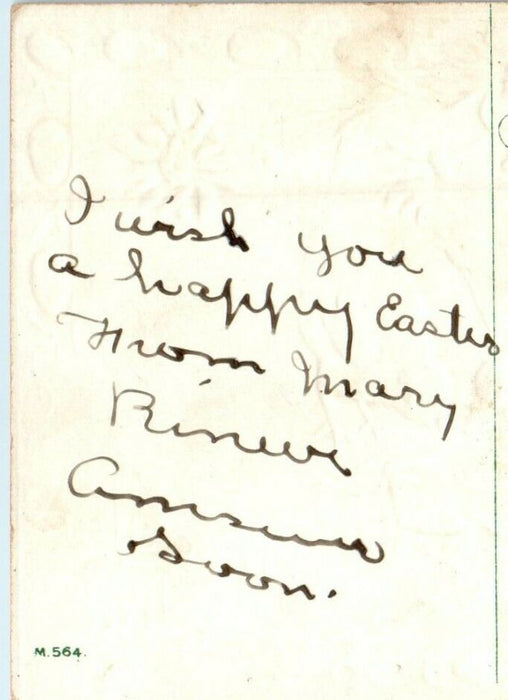 I wish you
a happy Easter
From Mary
Answer
Soon.
M.564.